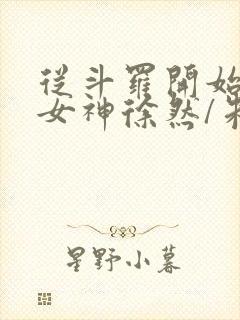 從斗羅開始
女神徐然/
星野小暮